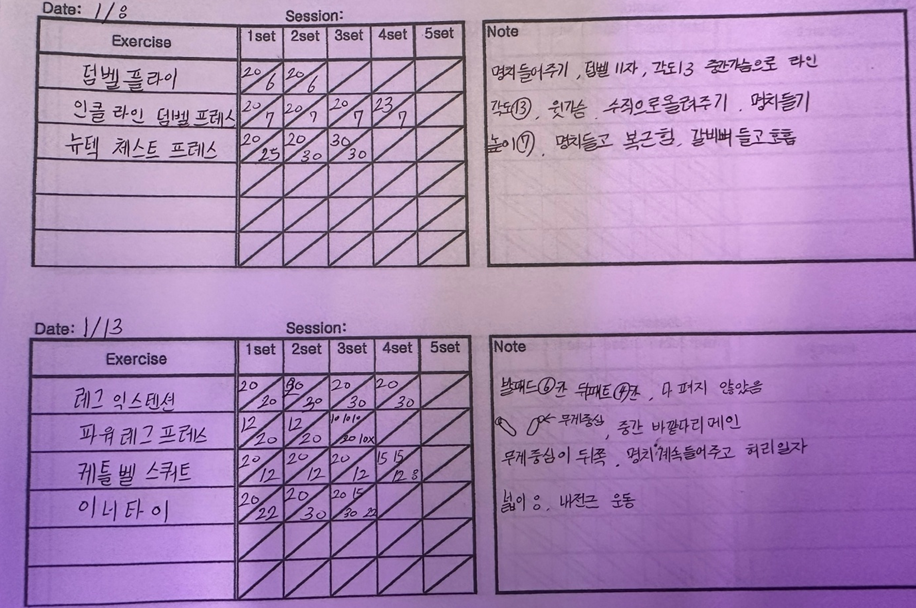 Date: 1/8 Session:
Exercise 1set 2set 3set 4set 5set Note
덤벨 플라이 20/6 20/6 명치 들어주기, 덤벨 11자, 각도 13 중간가슴으로 라인
인클라인 덤벨 프레스 20/7 20/7 20/7 23/7 각도⑬, 윗가슴, 수직으로 올려주기, 명치들기
뉴텍 체스트 프레스 20/25 20/30 30/30 높이⑦, 명치들고 복근힘, 갈비뼈 들고 호흡
Date: 1/13 Session:
Exercise 1set 2set 3set 4set 5set Note
레그 익스텐션 20/20 30 20/30 20/30 발패드⑥칸 칸, 다 펴지 않았음
파워 레그 프레스 12/20 12/20 10 10 10/20 10x 무게중심, 중간 바깥다리 메인
케틀벨 스쿼트 20/12 20/12 20/12 15 15/12 8 무게중심이 뒤쪽, 명치 계속 들어주고 허리일자
이너타이 20/22 20/30 20 15/30 22 넓이 8, 내전근 운동